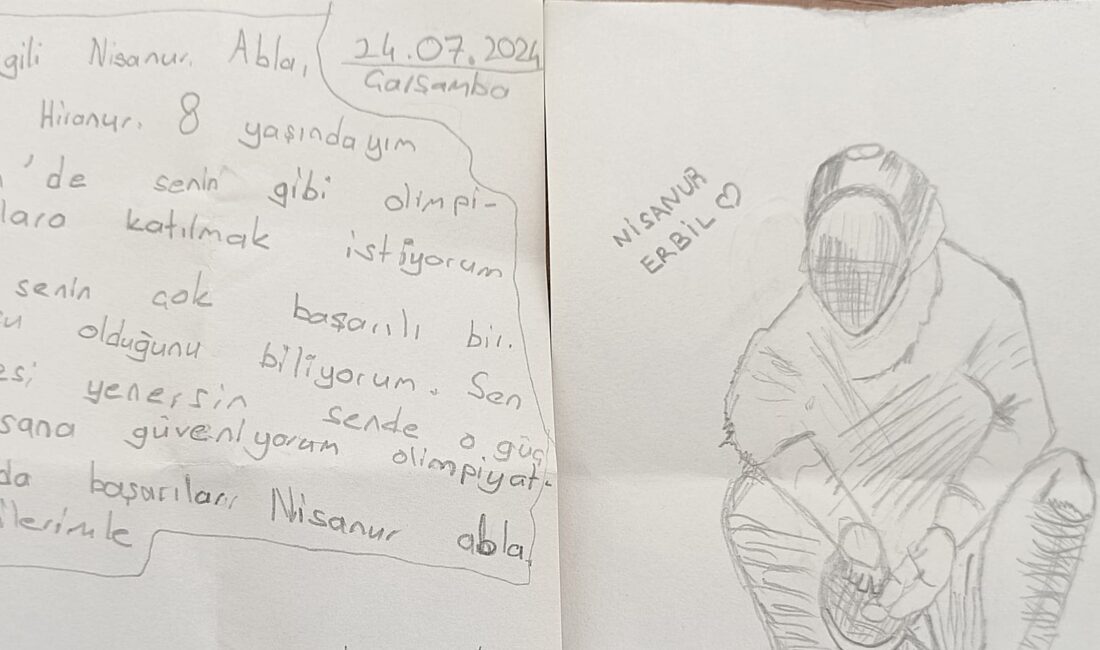 gili Nisanur Abla,
24.07.2024
Çarşamba
Hiranur. 8 yaşındayım
'de senin gibi olimpi-
lara katılmak istiyorum
senin çok başarılı bir.
olduğunu biliyorum. Sen
esi yenersin sende o güç
sana güveniyorum olimpiyat-
da başarılar Nisanur abla
ilerimle
NİSANUR
ERBİL ♡